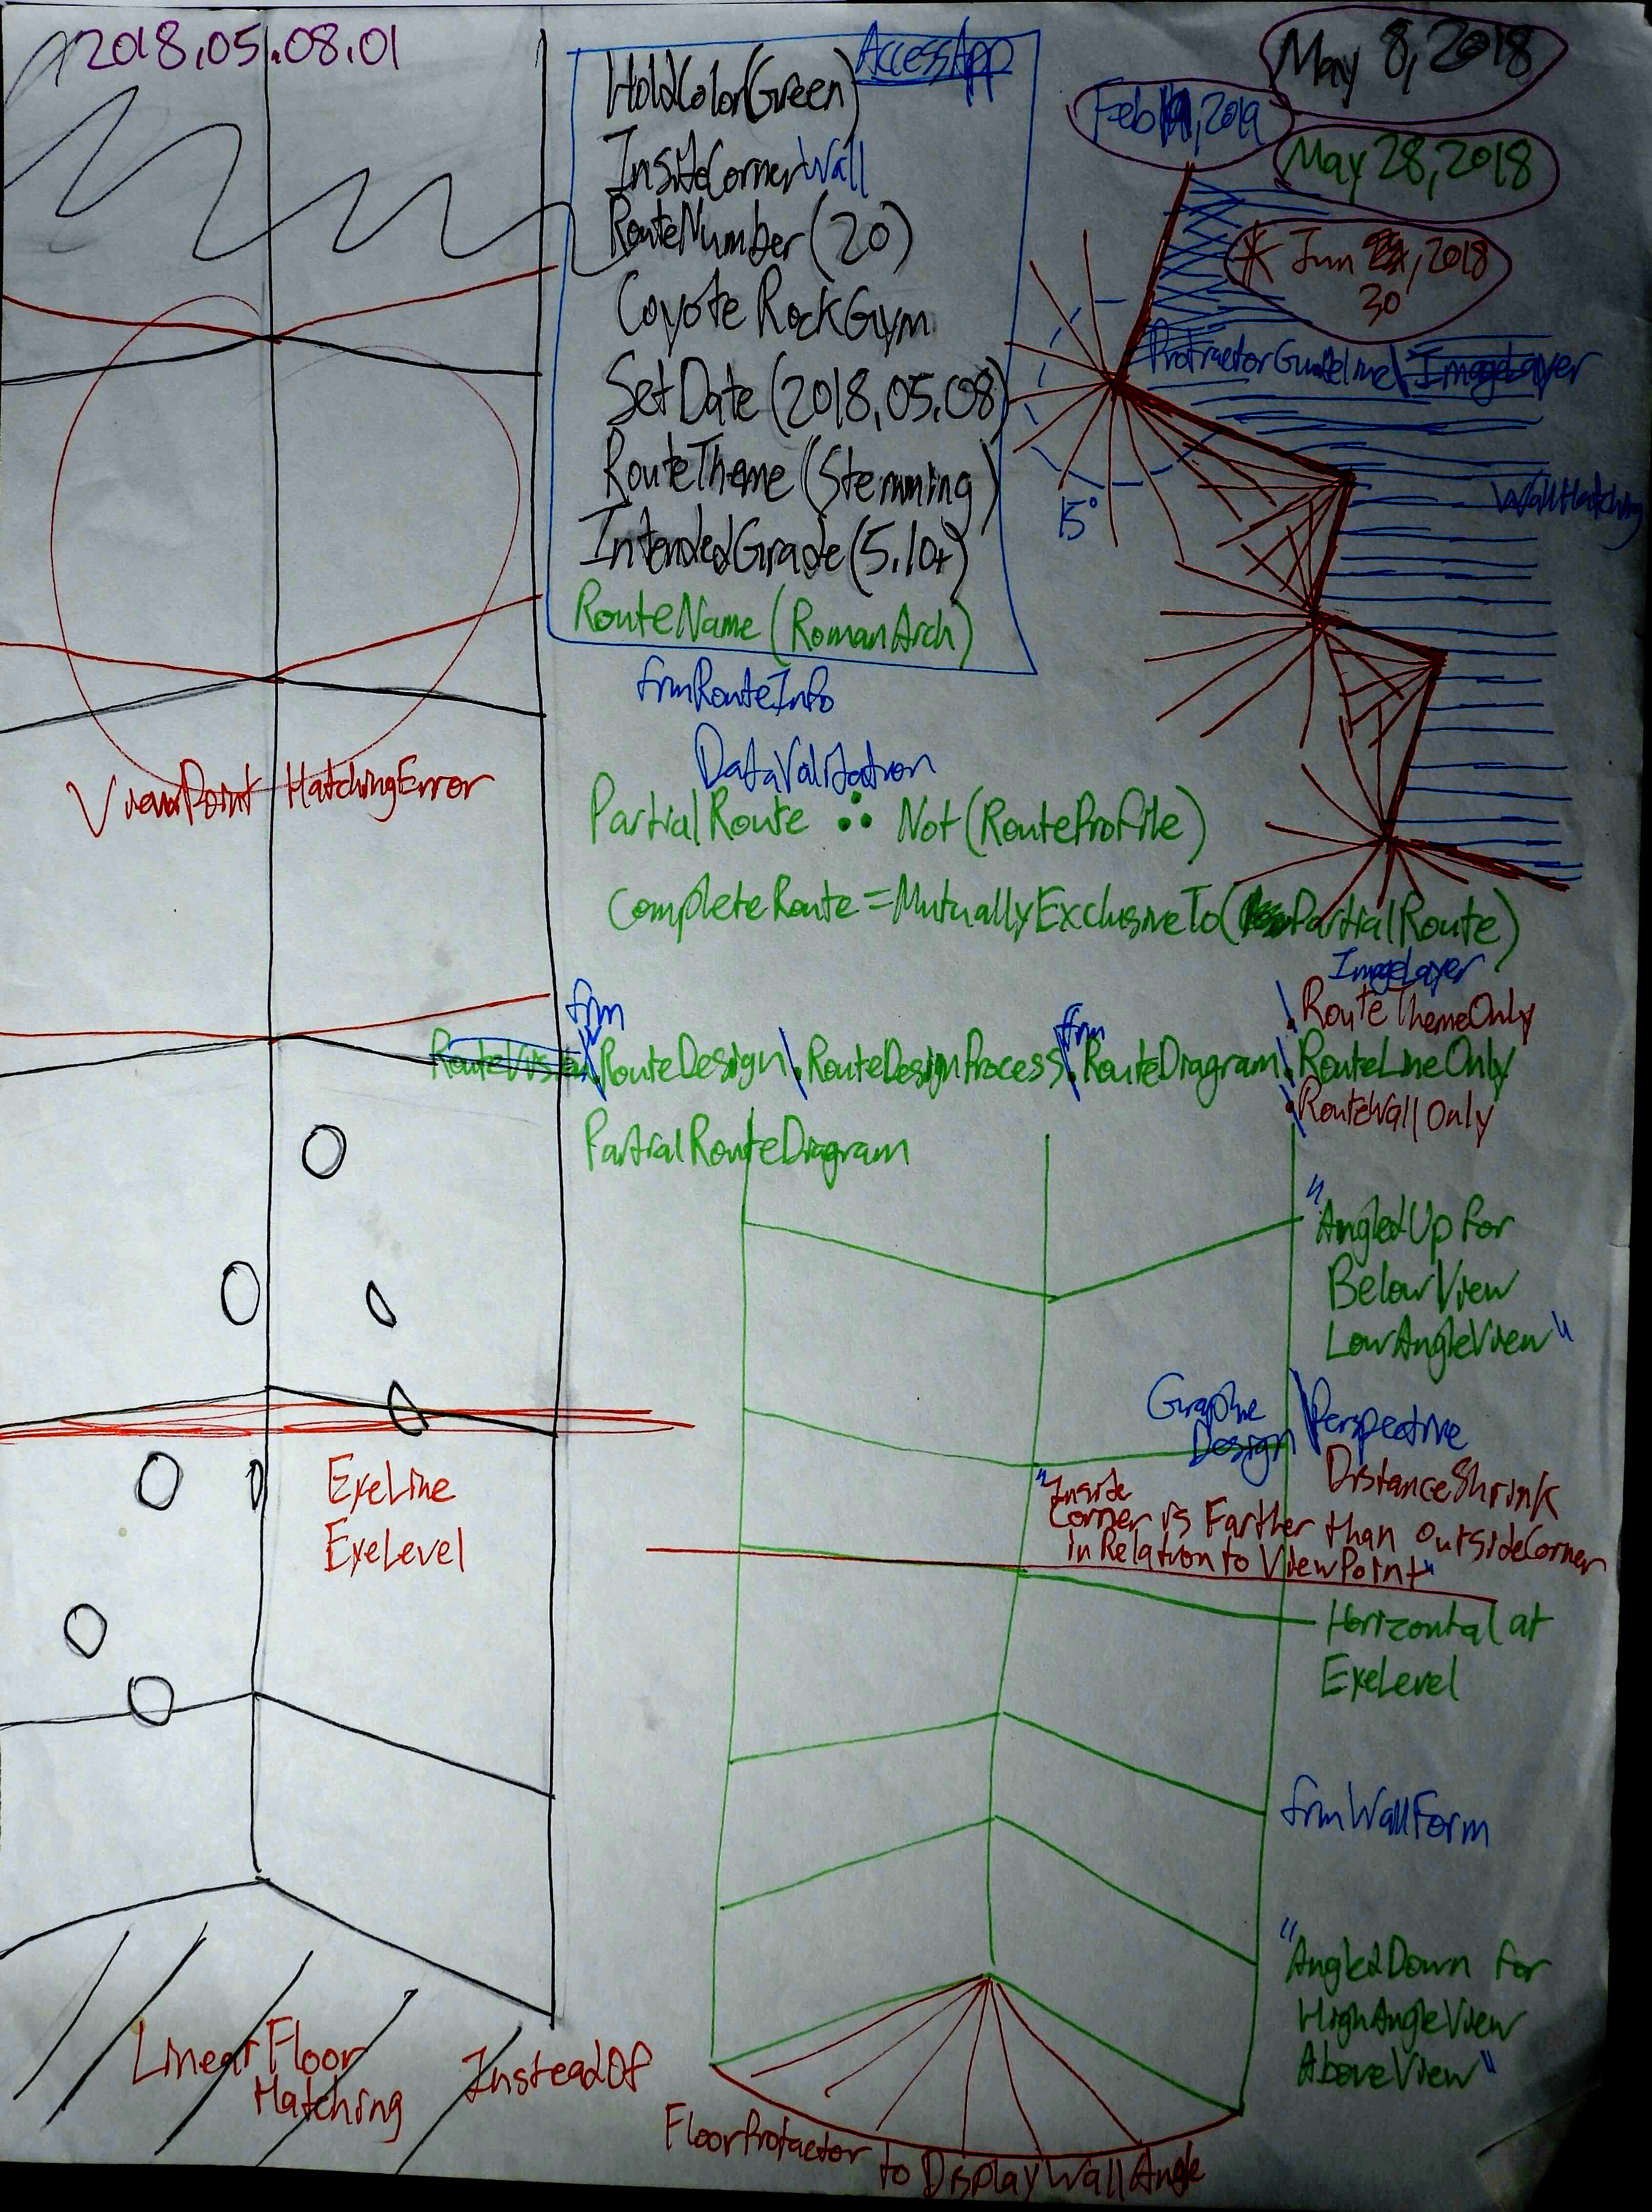 2018.05.08.01
AccessApp
May 8, 2018
Feb 19, 2019
May 28, 2018
* Jun 2018
30
HoldColor(Green)
InsideCornerWall
RouteNumber(20)
Coyote RockGym
SetDate(2018.05.08)
RouteTheme(Stemming)
IntendedGrade(5.10+)
RouteName(RomanArch)
ProtractorGuideline\ImageLayer
WallHatching
15°
frmRouteInfo
DataValidation
ViewPoint HatchingError
PartialRoute ∴ Not(RouteProfile)
CompleteRoute = MutuallyExclusiveTo(PartialRoute)
ImageLayer
\.RouteThemeOnly
frm frm
RouteVision\.RouteDesign\.RouteDesignProcess\.RouteDiagram\.RouteLineOnly
\.RouteWallOnly
PartialRouteDiagram
"AngledUp for
BelowView
LowAngleView"
Graphic
Design\Perspective
DistanceShrink
"Inside
Corner is Farther than OutsideCorner
in Relation to ViewPoint"
EyeLine
EyeLevel
Horizontal at
EyeLevel
frmWallForm
"AngledDown for
HighAngleView
AboveView"
LinearFloor
Hatching
InsteadOf
FloorProtactor to DisplayWallAngle